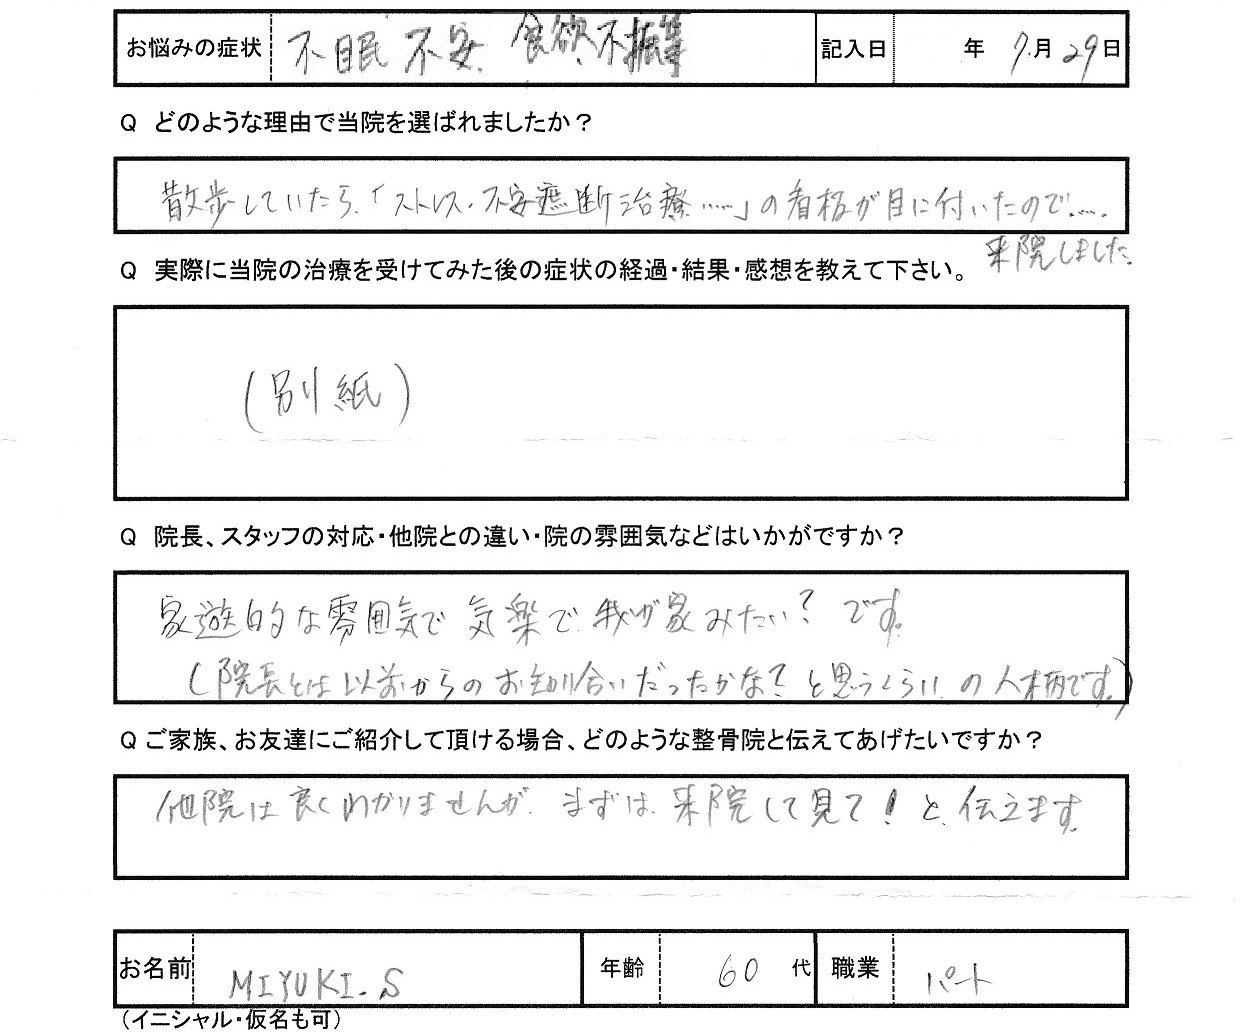 お悩みの症状 不眠 不安、食欲不振等 記入日 年 7月29日
Q どのような理由で当院を選ばれましたか？
散歩していたら、「ストレス・不安遮断治療……」の看板が目に付いたので……
来院しました。
Q 実際に当院の治療を受けてみた後の症状の経過・結果・感想を教えて下さい。
（別紙）
Q 院長、スタッフの対応・他院との違い・院の雰囲気などはいかがですか？
家遊的な雰囲気で 気楽で、我が家みたい？です。
（院長とは以前からのお知り合いだったかな？と思うくらいの人柄です。）
Q ご家族、お友達にご紹介して頂ける場合、どのような整骨院と伝えてあげたいですか？
他院は良くわかりませんが、まずは、来院して見て！と、伝えます。
お名前 MIYUKI.S 年齢 60 代 職業 パート
（イニシャル・仮名も可）